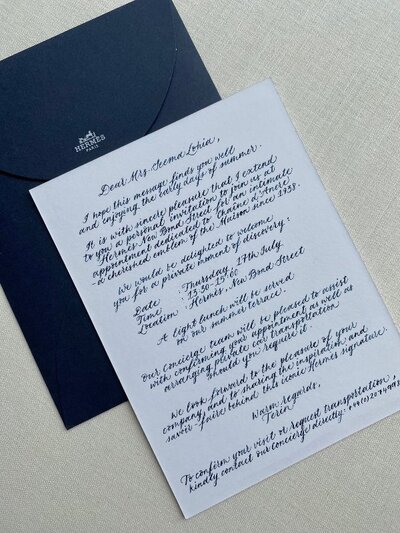 HERMÈS
PARIS
Dear Mrs. Seema Lohia,
I hope this message finds you well
and enjoying the early days of summer.
It is with sincere pleasure that I extend
to you a personal invitation to join us at
Hermès New Bond Street for an intimate
appointment dedicated to Chaîne d'Ancre
- a cherished emblem of the Maison since 1938.
We would be delighted to welcome
you for a private moment of discovery:
Date : Thursday, 17th July
Time : 13.30-15.00
Location : Hermès, New Bond Street
A light lunch will be served
on our summer terrace.
Our Concierge team will be pleased to assist
with confirming your appointment as well as
arranging private car transportation
should you require it.
We look forward to the pleasure of your
company, and to sharing the inspiration and
savoir-faire behind this iconic Hermès signature.
Warm regards,
Terin
To confirm your visit or request transportation,
kindly contact our concierge directly: